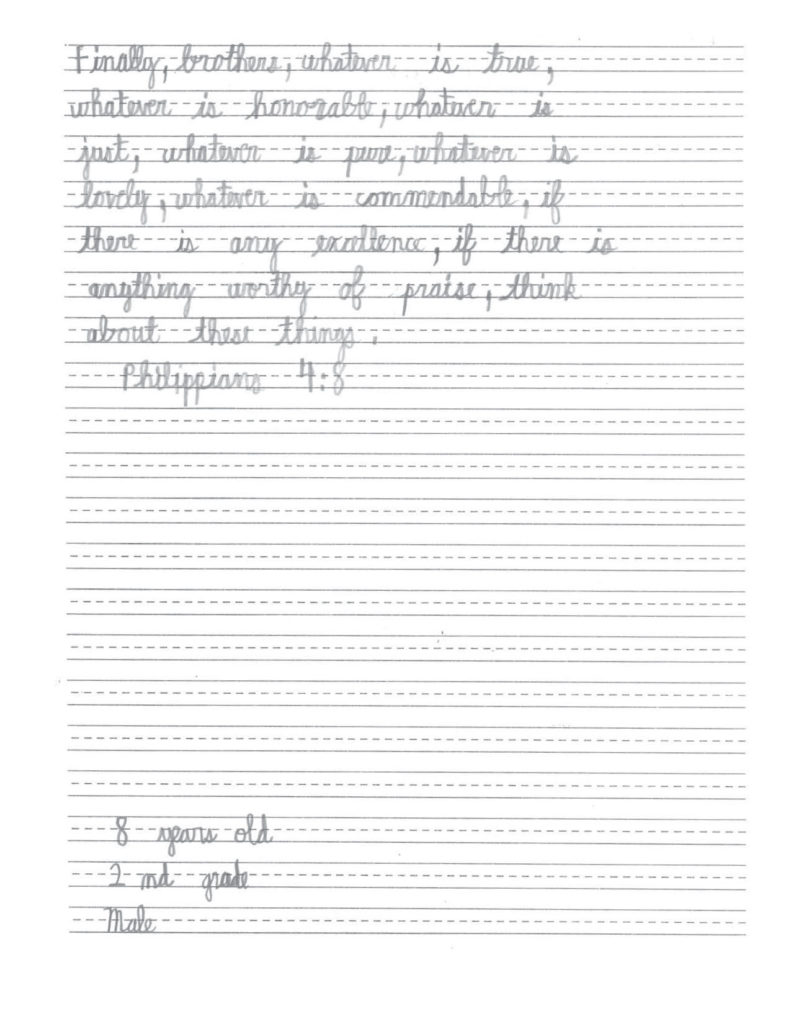 Finally, brothers, whatever is true,
whatever is honorable, whatever is
just, whatever is pure, whatever is
lovely, whatever is commendable, if
there is any excellence, if there is
anything worthy of praise, think
about these things.
Philippians 4:8
8 years old
2 nd grade
Male